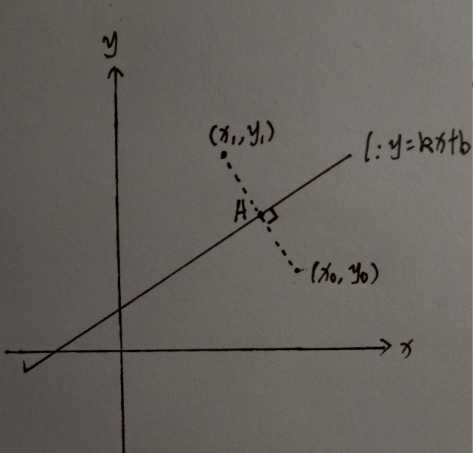 y
(x₁, y₁)
l: y=kx+b
A
(x₀, y₀)
x